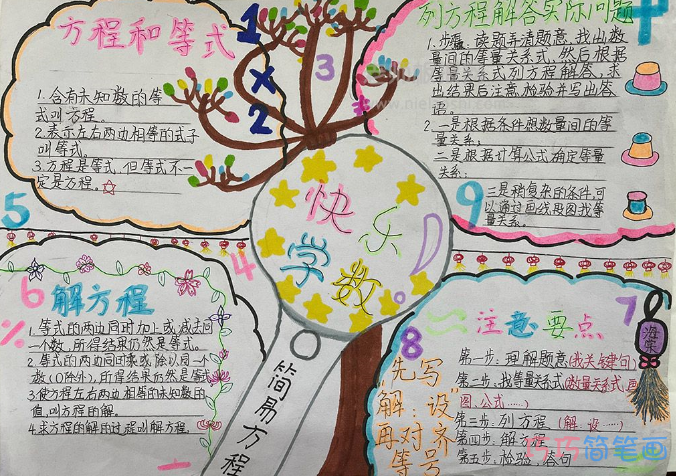 方程和等式
1.含有未知数的等
式叫方程。
2.表示左右两边相等的式子
叫等式。
3.方程是等式,但等式不一
定是方程。
1
×
2
3
列方程解答实际问题
1.步骤:读题弄清题意,找出数
量间的等量关系式,然后根据
等量关系式列方程解答,求
出结果后注意检验并写出答
语。
2.一是根据条件想数量间的等
量关系;
二是根据计算公式确定等量
关系;
三是稍复杂的条件,可
以通过画线段图找等
量关系。
9
5
4
快乐
学数
简易方程
6
%
解方程
1.等式的两边同时加上或减去同
一个数,所得结果仍然是等式。
2.等式的两边同时乘或除以同一个
数(0除外),所得结果仍然是等式
3.使方程左右两边相等的未知数的
值,叫方程的解。
4.求方程的解的过程叫解方程。
7
8
注意要点
第一步:理解题意(找关键句)
第二步:找等量关系式(数量关系式,画
图、公式……)
第三步:列方程(解、设……)
第四步:解方程
第五步:检验、答句
"先写
解:设"
再对齐
等号
巧巧简笔画